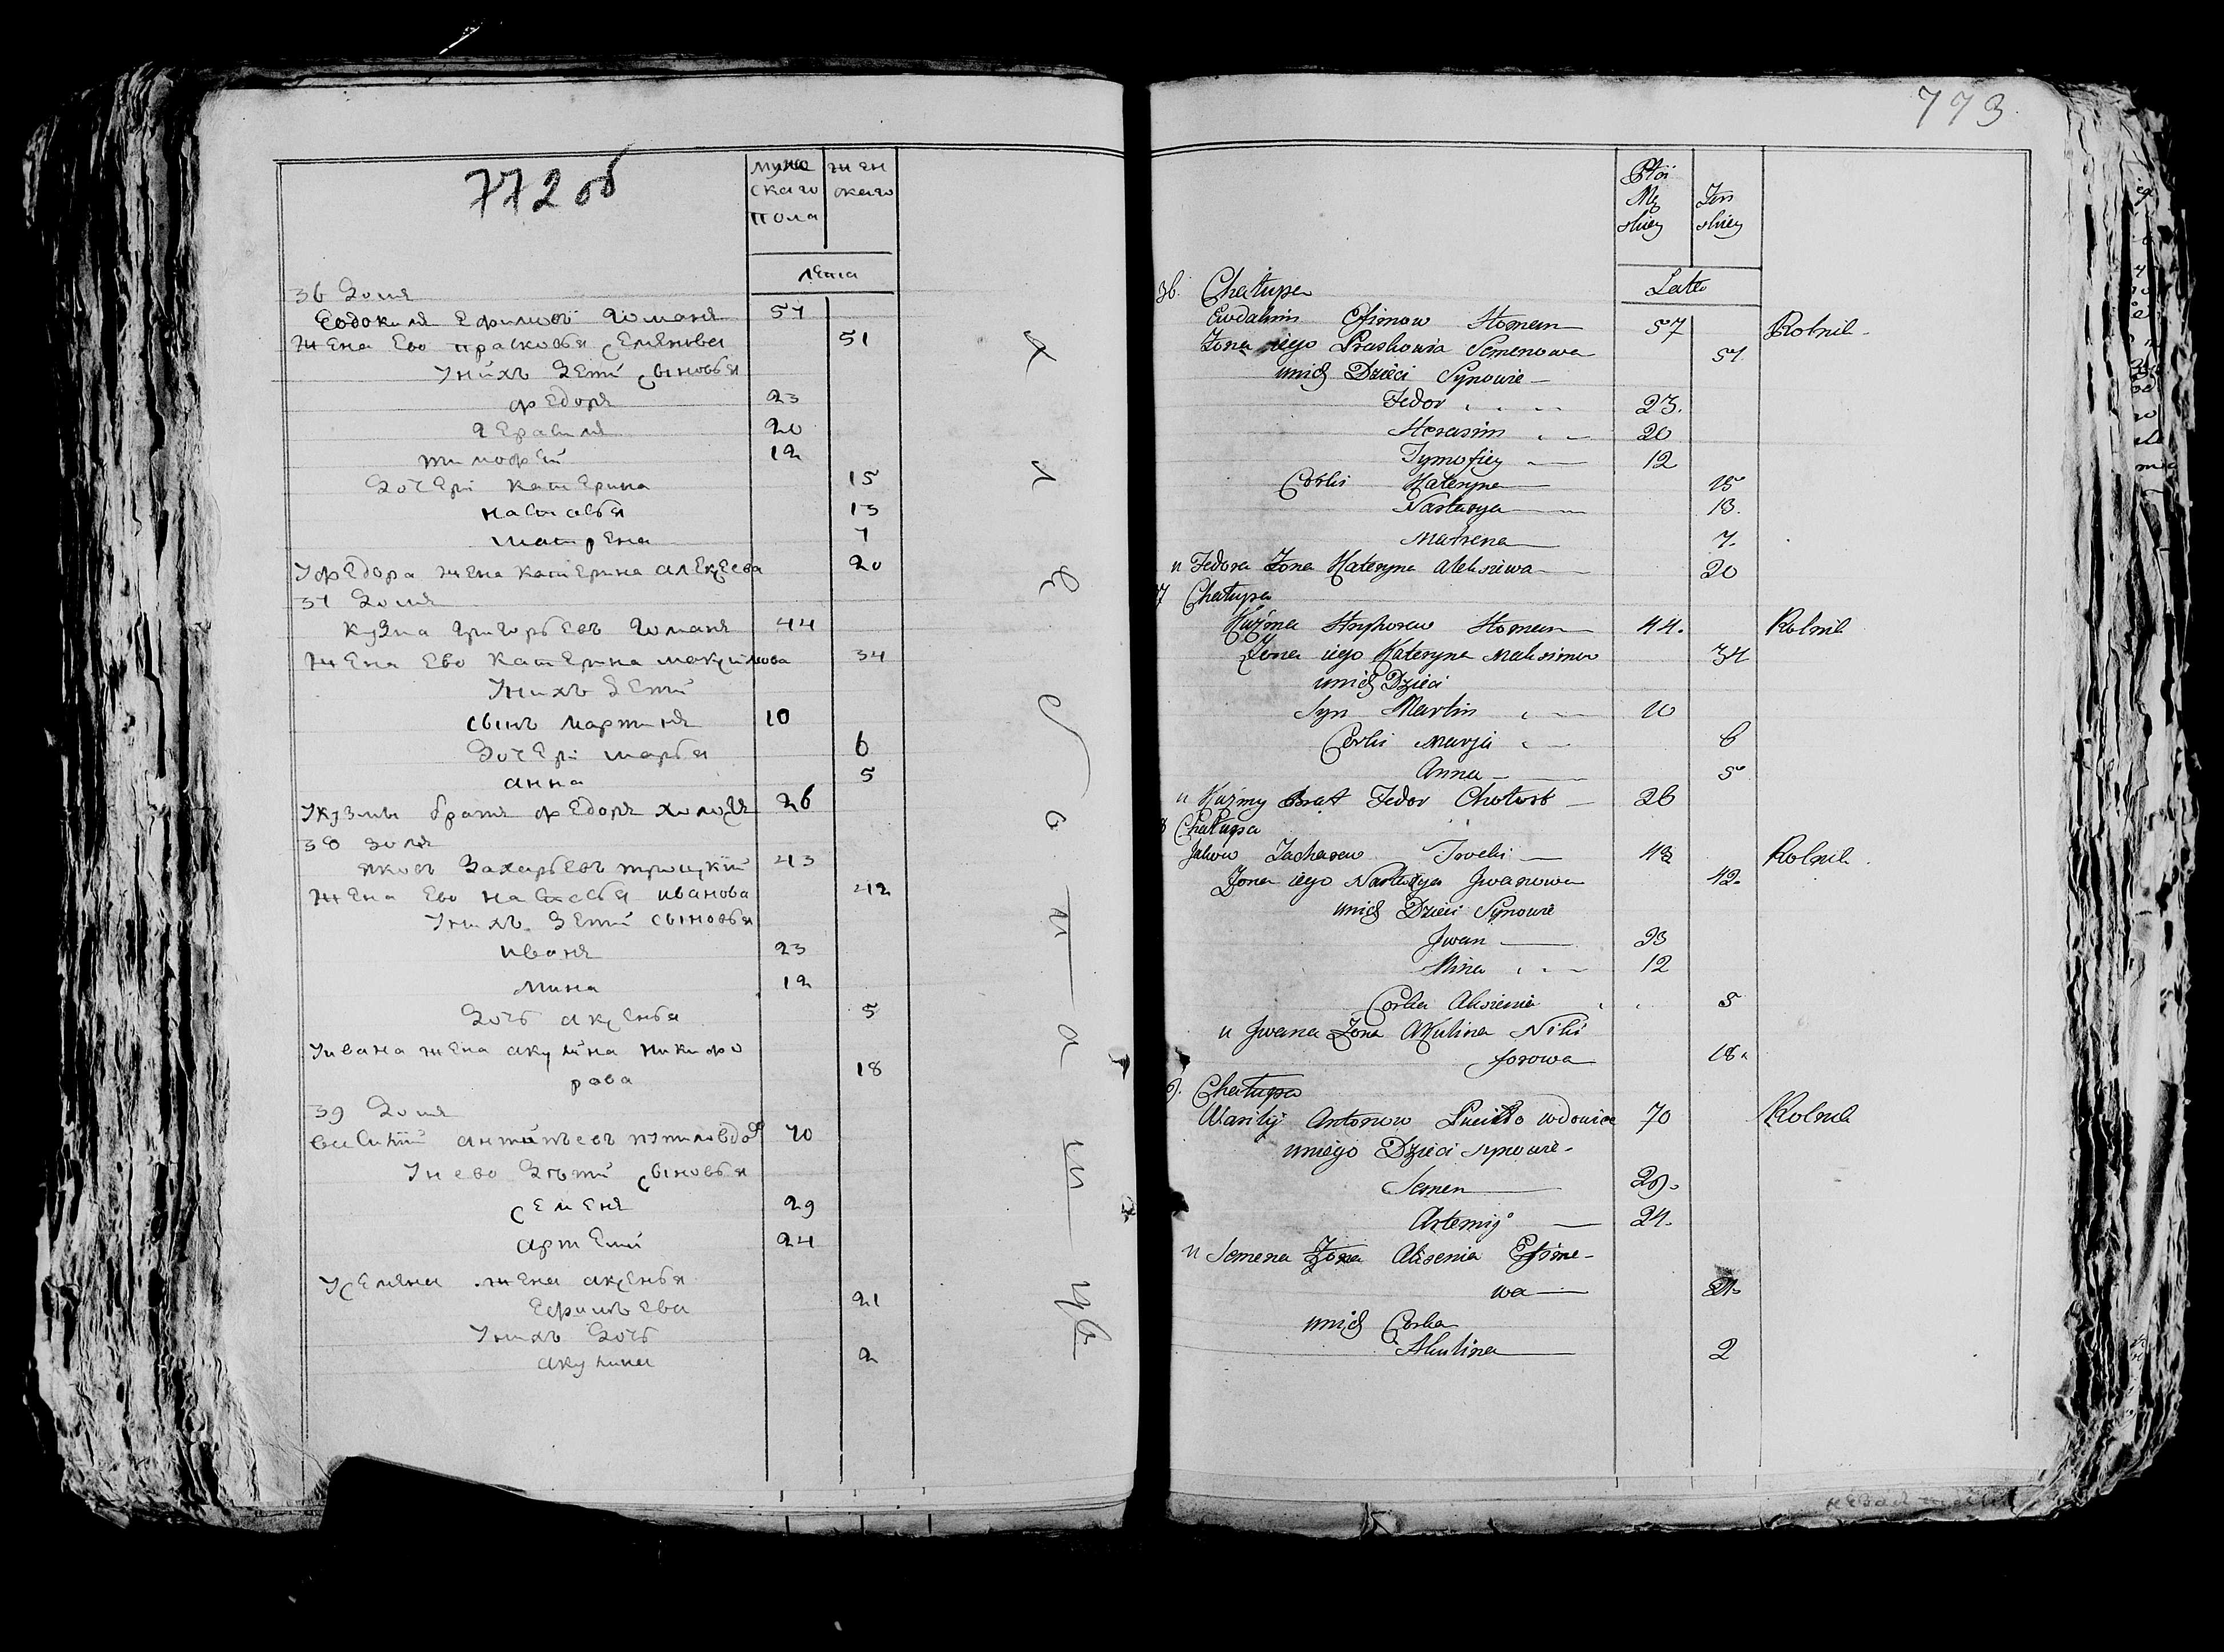 772 об
муже
скаго
пола
жен
скаго
лета
36 домъ
Евдокимъ Ефимовъ Гоманъ 57
жена Ево прасковья Семенова 51
Унихъ Дети сыновья
федоръ 23
Герасимъ 20
тимофей 12
Дочери катерина 15
настасья 13
матрена 7
Уфедора жена катерина алексеева 20
37 домъ
кузма григорьевъ Гоманъ 44
жена Ево катерина максимова 34
Унихъ Дети
сынъ мартинъ 10
Дочери марья 6
анна 5
Укузмы братъ федоръ 26
38 домъ
яковъ Захарьевъ троцкій 43
жена Ево настасья иванова 42
Унихъ Дети сыновья
иванъ 23
мина 12
Дочь аксенья 5
Уивана жена акулина никифо
рова 18
39 домъ
василій 70
Унево Дети сыновья
семенъ 29
артемій 24
Усемена жена аксенья
Ефимьева 21
Унихъ Дочь
акулина 2
793
Płci
Mę
skiey
Żen
skiey
Lata
36. Chałupa
Ewdakim Efimow Homan 57 Rolnik
Żona iego Praskowia Semenowa 51
unich Dzieci Synowie
Fedor 23.
Herasim 20
Tymofiey 12
Corki Kateryna 15
Nastasya 13.
Matrena 7.
u Fedora Żona Kateryna Aleksiewa 20
7 Chałupa
Kuźma Homan 44. Rolnik
Żona iego Kateryna Maksimow 34
unich Dzieci
Syn Martin 10
Corki Marja 6
Anna 5
u Kuźmy Brat Fedor 26
8 Chałupa
Jakow Zacharew 43 Rolnik.
Żona iego Nastasya Jwanowa 42.
unich Dzieci Synowie
Jwan 23
Mina 12
Corka Aksienia 5
u Jwana Żona Akulina Niki
forowa 18.
9. Chałupa
Wasilij Antonow wdowiec 70 Rolnik
uniego Dzieci synowie
Semen 29.
Artemij 24.
u Semena Żona Aksenia Efime-
wa 21
unich Corka
Akulina 2